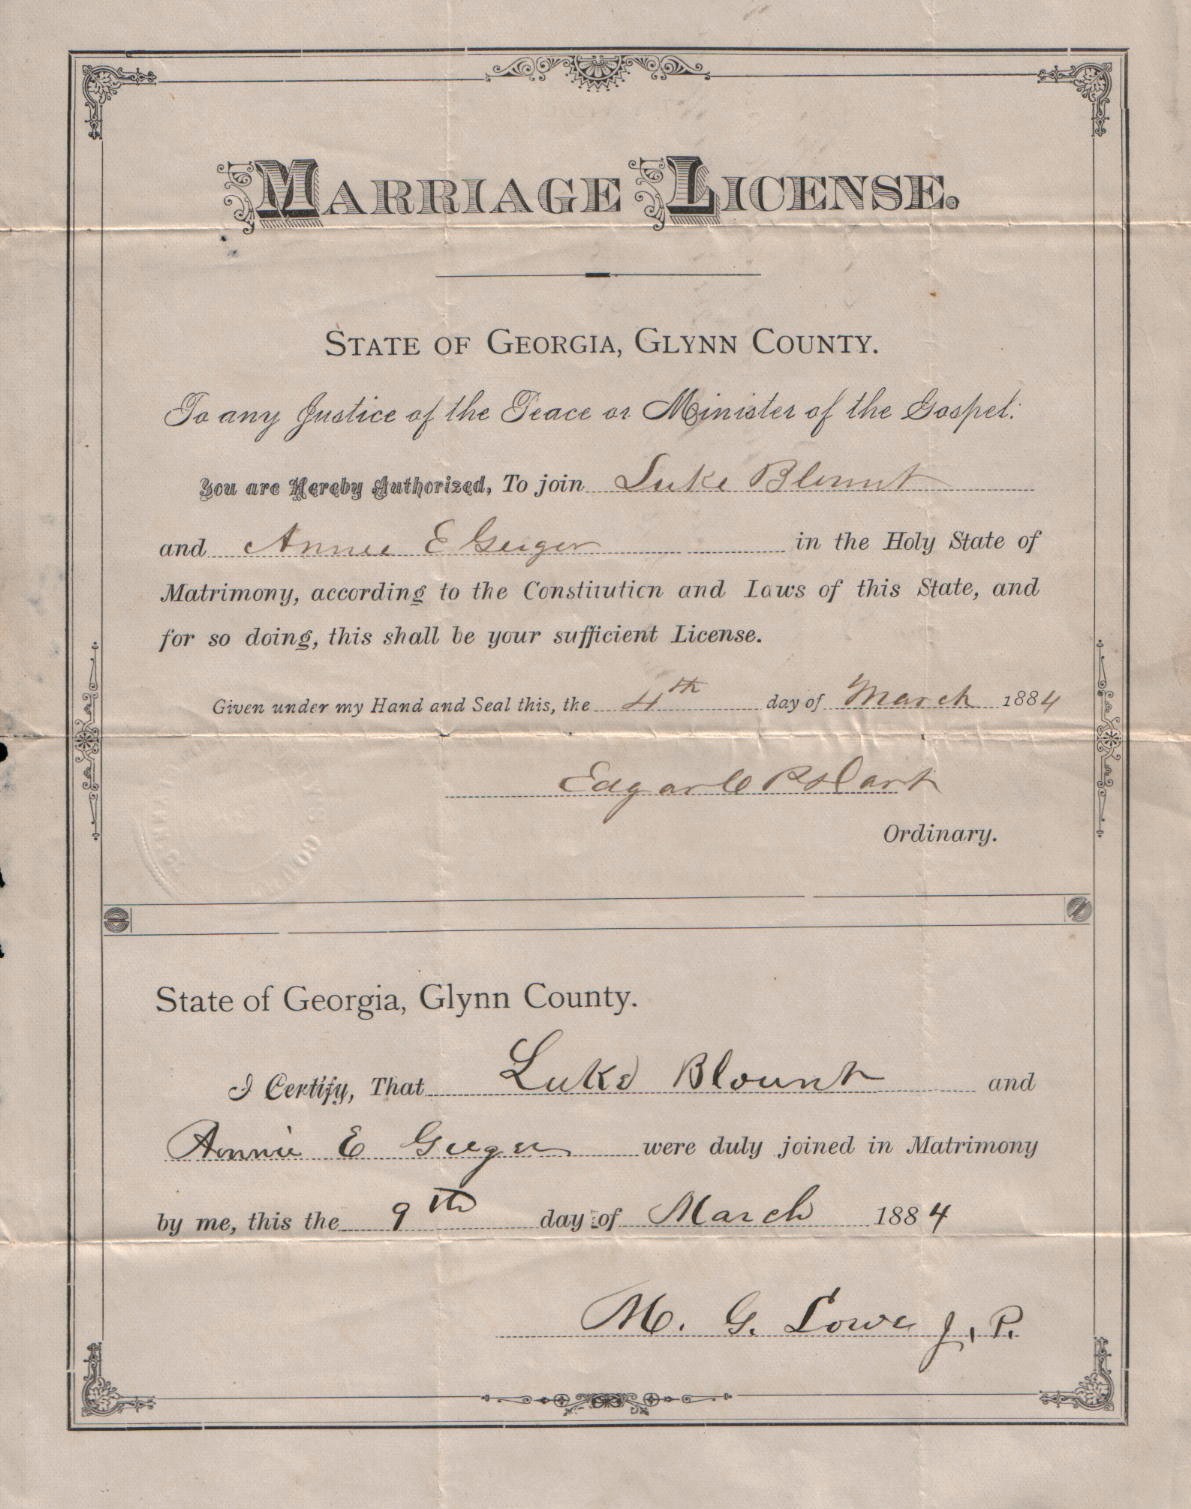 MARRIAGE LICENSE.
STATE OF GEORGIA, GLYNN COUNTY.
To any Justice of the Peace or Minister of the Gospel:
You are Hereby Authorized, To join Luke Blount
and Annie E Geiger in the Holy State of
Matrimony, according to the Constitution and Laws of this State, and
for so doing, this shall be your sufficient License.
Given under my Hand and Seal this, the 4th day of March 1884
Edgar C P Dart
Ordinary.
State of Georgia, Glynn County.
I Certify, That Luke Blount and
Annie E Geiger were duly joined in Matrimony
by me, this the 9th day of March 1884
M. G. Lowe J. P.